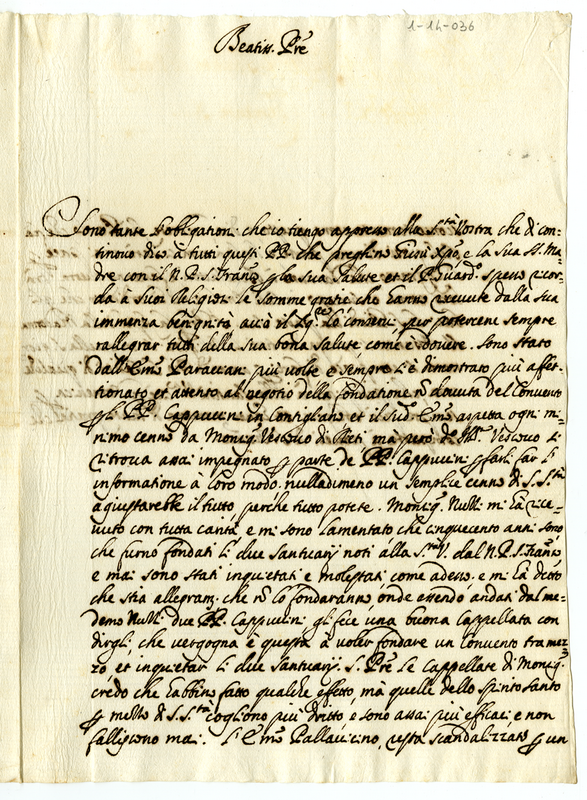 1-14-036
Beatiss. Pre
Sono tante l'obligationi che io tengo appresso alla S.tà Vostra che di con=
tinovo dico à tutti questi PP. che preghino Giesù Xpo, e la sua SS. Ma=
dre con il N. P. S. Franco p la sua salute et il P. Guardo spesso ricor=
da à suoi Religiosi le somme gratie che hanno ricevute dalla sua
immenza benignità acciò il Sig.re lo conservi per potercene sempre
rallegrar tutti della sua bona salute come è dovere. Sono stato
dall' Emo Paracciani più volte e sempre si è dimostrato più affet=
tionato et attento al negotio della fondatione nō dovuta del Convento
p gli PP. Cappuccini in Contigliano et il sudo Emo aspetta ogni mi=
nimo cenno da Monsig. Vescovo di Rieti mà però do Mr. Vescovo si
ritrova assai impegnato p parte de PP. Cappuccini p farli far l'
informatione à loro modo. nulladimeno un semplice cenno di S. S.tà
agiustarebbe il tutto, perche tutto potete. Monsig. Nulli mi hà rice=
vuto con tutta carità e mi sono lamentato che cinquecento anni sono
che furno fondati li due santuarij noti alla S.tà V. dal N. P. S. Franco
e mai sono stati inquietati e molestati come adesso. e mi hà detto
che stia allegram. che nō lo fondaranno, onde essendo andati dal me=
demo Nulli due PP. Cappuccini gli fece una buona Cappellata con
dirgli, che vergogna è questa à voler fondare un Convento tramez=
zo et inquietar li due santuarij. S. Pre le Cappellate di Monsig.
credo che habbino fatto qualche effetto, mà quelle dello Spirito Santo
p mezzo di S. S.tà cogliono più dritto, e sono assai più efficaci e non
falliscono mai. L' Emo Pallavicino, resta scandalizzato p un